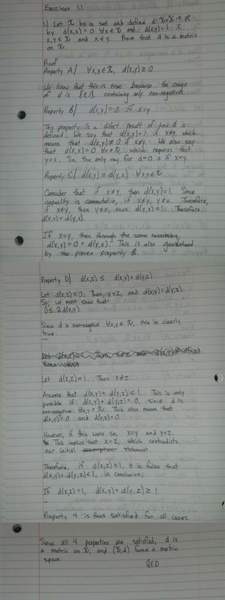 Exercises 1.1
1) Let X be a set and define d: X×X → R
by d(x,x) = 0 ∀x∈X and d(x,y) = 1 if
x,y ∈ X and x≠y. Prove that d is a metric
on X.
Proof
Property A) ∀x,y∈X, d(x,y) ≥ 0
We know that this is true because the range
of d is {0,1}, containing only nonnegatives.
Property B) d(x,y) = 0 if x=y
This property is a direct result of how d is
defined. We say that d(x,y) = 1 if x≠y, which
means that d(x,y) ≠ 0 if x≠y. We also say
that d(x,x) = 0 ∀x∈X, which means that
So, the only way for d=0 is if x=y
Property C) d(x,y) = d(y,x) ∀x,y∈X
Consider that if x≠y, then d(x,y)=1. Since
equality is commutative, if x≠y, y≠x. Therefore,
if x≠y, then y≠x, so d(y,x) = 1. Therefore
d(x,y) = d(y,x).
If x=y, then through the same reasoning,
d(x,y) = 0 = d(y,x). This is also guaranteed
by the proven property B.
Property D) d(x,z) ≤ d(x,y) + d(y,z)
Let d(x,z) = 0. Then, x=z, and d(x,y) = d(y,z).
So, we must show that:
0 ≤ 2d(x,y)
Since d is nonnegative ∀x,y∈X, this is clearly
true.
Let d(x,z) = 1. Then x≠z
Assume that d(x,y) + d(y,z) < 1. This is only
possible if d(x,y) + d(y,z) = 0, since d is
nonnegative ∀x,y∈X. This also means that
d(x,y) = 0 and d(y,z) = 0.
However, if this were so, x=y and y=z.
This implies that x=z, which contradicts
our initial
Therefore, if d(x,z) = 1, it is false that
d(x,y) + d(y,z) < 1. In conclusion,
If d(x,z) = 1, d(x,y) + d(y,z) ≥ 1
Property 4 is thus satisfied for all cases
Since all 4 properties are satisfied, d is
a metric on X, and (X,d) forms a metric
space.
QED